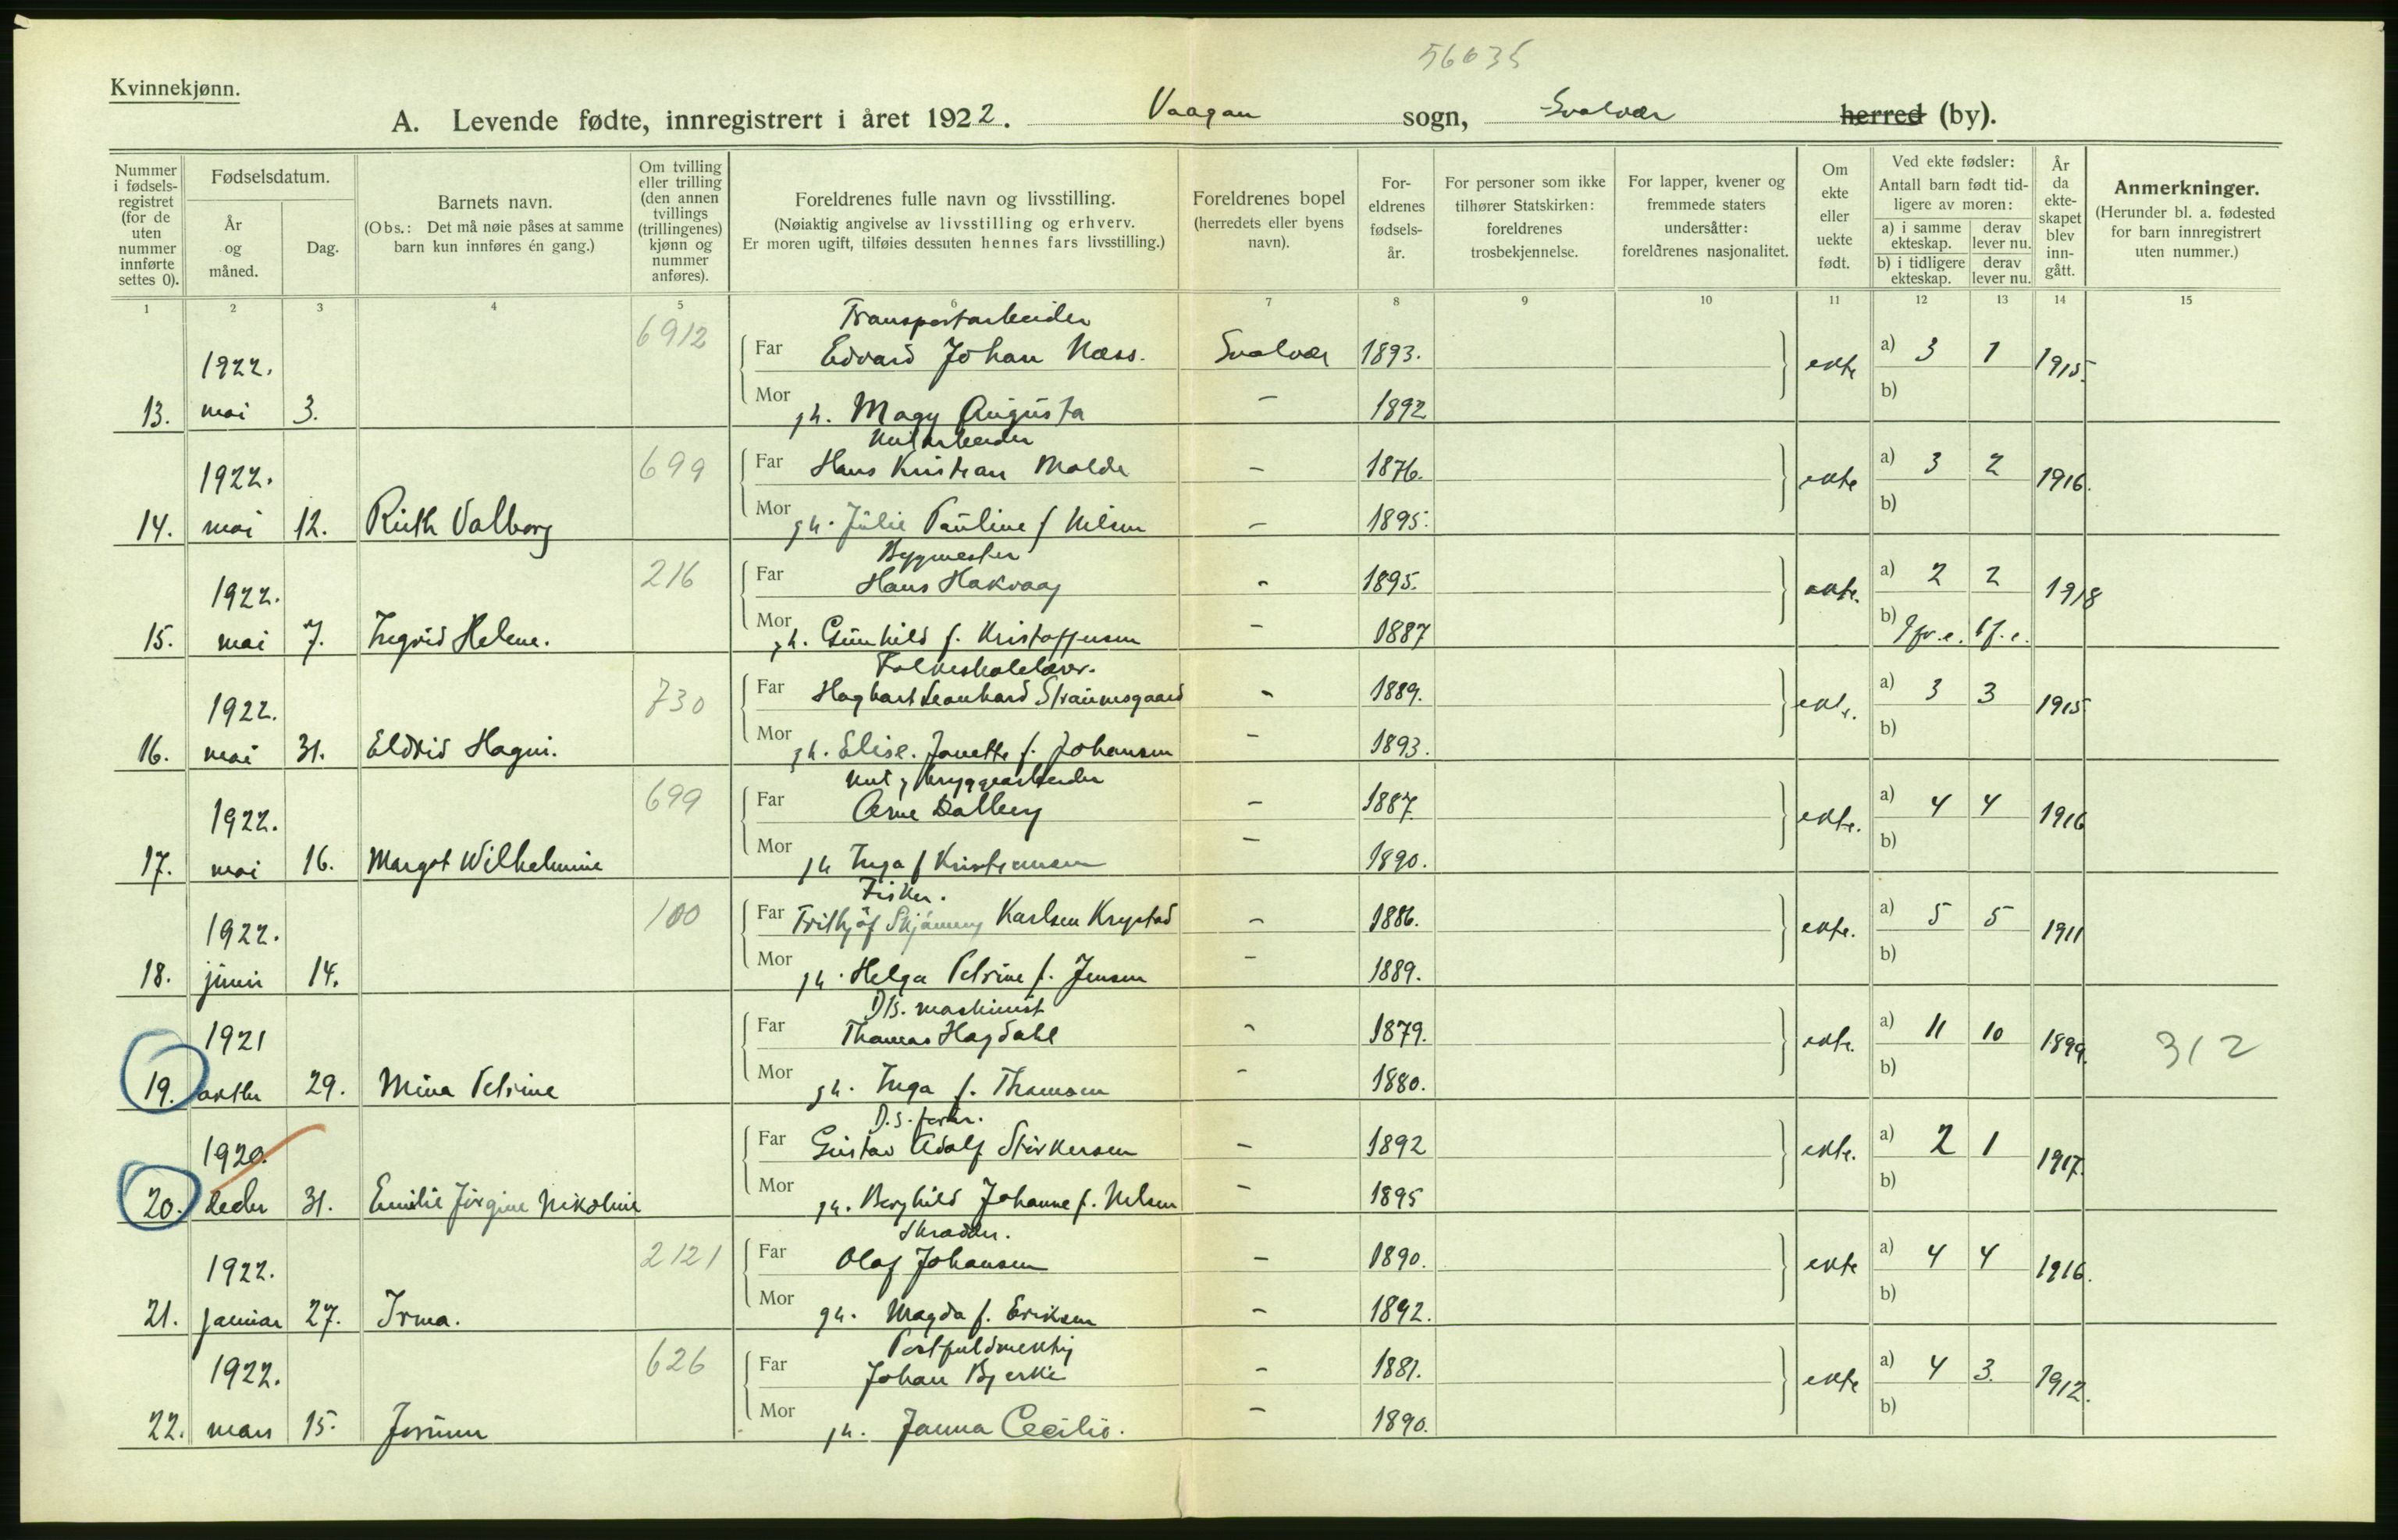 56035
Kvinnekjønn.
A. Levende fødte, innregistrert i året 1922. Vaagan sogn, Svolvær herred (by).
Nummer i fødsels-registret (for de uten nummer innførte settes 0).
Fødselsdatum.
År og måned.
Dag.
Barnets navn.
(Obs.: Det må nøie påses at samme barn kun innføres én gang.)
Om tvilling eller trilling (den annen tvillings (trillingenes) kjønn og nummer anføres).
Foreldrenes fulle navn og livsstilling.
(Nøiaktig angivelse av livsstilling og erhverv.
Er moren ugift, tilføies dessuten hennes fars livsstilling.)
Foreldrenes bopel (herredets eller byens navn).
For-eldrenes fødsels-år.
For personer som ikke tilhører Statskirken: foreldrenes trosbekjennelse.
For lapper, kvener og fremmede staters undersåtter: foreldrenes nasjonalitet.
Om ekte eller uekte født.
Ved ekte fødsler:
Antall barn født tid-ligere av moren:
a) i samme ekteskap.
derav lever nu.
b) i tidligere ekteskap.
derav lever nu.
År da ekte-skapet blev inn-gått.
Anmerkninger.
(Herunder bl. a. fødested for barn innregistrert uten nummer.)
1 2 3 4 5 6 7 8 9 10 11 12 13 14 15
6912 Transportarbeider
1922. Far Edvard Johan Næss. Svolvær 1893. ekte a) 3 1 1915.
13. mai 3. Mor gh. Magy Augusta – 1892 b)
699 arbeider
1922. Far Hans Kristian Molde – 1876. ekte a) 3 2 1916.
14. mai 12. Ruth Valborg Mor gh. Julie Pauline f Nilsen – 1895. b)
216 Byggmester
1922. Far Hans Hakvaag – 1895. ekte. a) 2 2 1918
15. mai 7. Ingrid Helene. Mor gh. Gunhild f. Kristoffersen – 1887 b)
730 Folkeskolelærer.
1922. Far Hagbart Leonhard Straumsgaard – 1889. ekte. a) 3 3 1915
16. mai 31. Eldrid Hagni. Mor gh. Elise. Janette f. Johansen – 1893. b)
699 bryggearbeider
1922. Far Arne Dalberg – 1887. ekte. a) 4 4 1916
17. mai 16. Margot Wilhelmine Mor gh Inga f Kristiansen – 1890. b)
100 Fisker.
1922. Far Frithjof Karlsen – 1886. ekte. a) 5 5 1911
18. juni 14. Mor gh. Helga Petrine f. Jensen – 1889. b)
D/S. maskinist
1921 Far Thomas Hagdahl – 1879. ekte. a) 11 10 1899. 312
19. oktbr 29. Mina Petrine Mor gh. Inga f. Thomsen – 1880. b)
D.S. fører.
1920. Far Gustav Adolf Størkersen – 1892 ekte. a) 2 1 1917.
20. decbr 31. Emilie Jørgine Nikoline Mor gh. Berghild Johanne f. Nilsen – 1895 b)
2121 Skrædder.
1922. Far Olaf Johansen – 1890. ekte a) 4 4 1916.
21. januar 27. Irma. Mor gh. Magda f. Eriksen – 1892. b)
626 Postfuldmektig
1922. Far Johan Bjerke – 1881. ekte a) 4 3. 1912.
22. mars 15. Jorunn Mor gh. Janna Cecilie. – 1890. b)